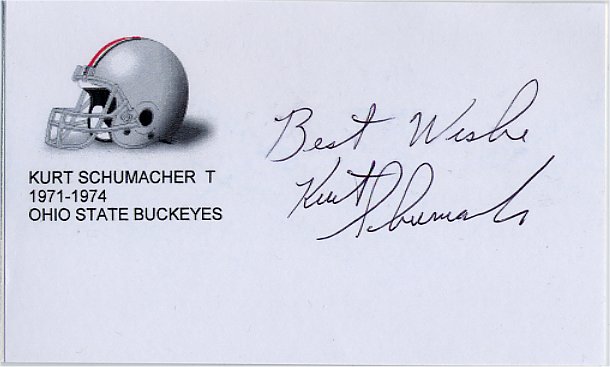 KURT SCHUMACHER T
1971-1974
OHIO STATE BUCKEYES
Best Wishe
Kurt Schumach